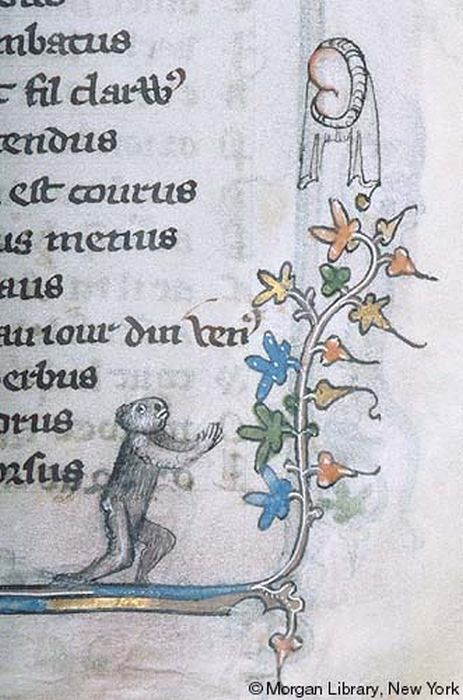 mbatus
t fil clarw9
tendus
est courus
us menus
aus
au iour din Ven9
erbus
drus
orsus
©Morgan Library, New York